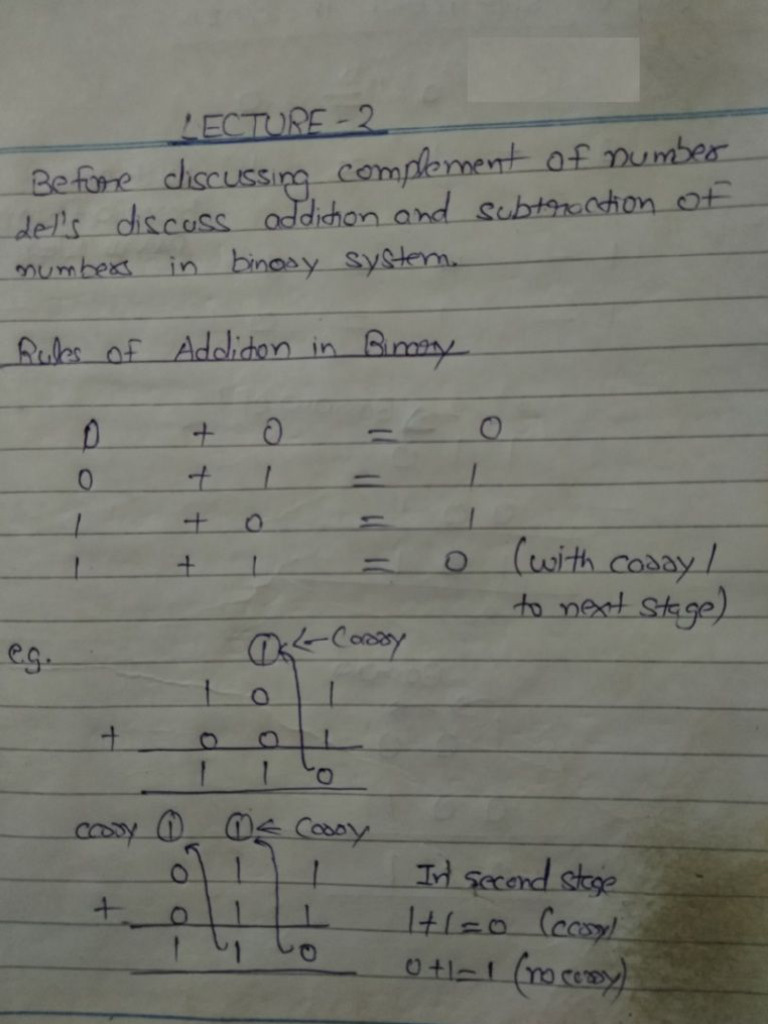 LECTURE - 2
Before discussing complement of number
let's discuss addition and subtraction of
numbers in binary system.
Rules of Addition in Binary
0 + 0 = 0
0 + 1 = 1
1 + 0 = 1
1 + 1 = 0 (with carry 1
to next stage)
e.g. 1 ← Carry
1 0 1
+ 0 0 1
1 1 0
carry 1 1 ← Carry
0 1 1 In second stage
+ 0 1 1 1+1=0 (carry)
1 1 0 0+1=1 (no carry)